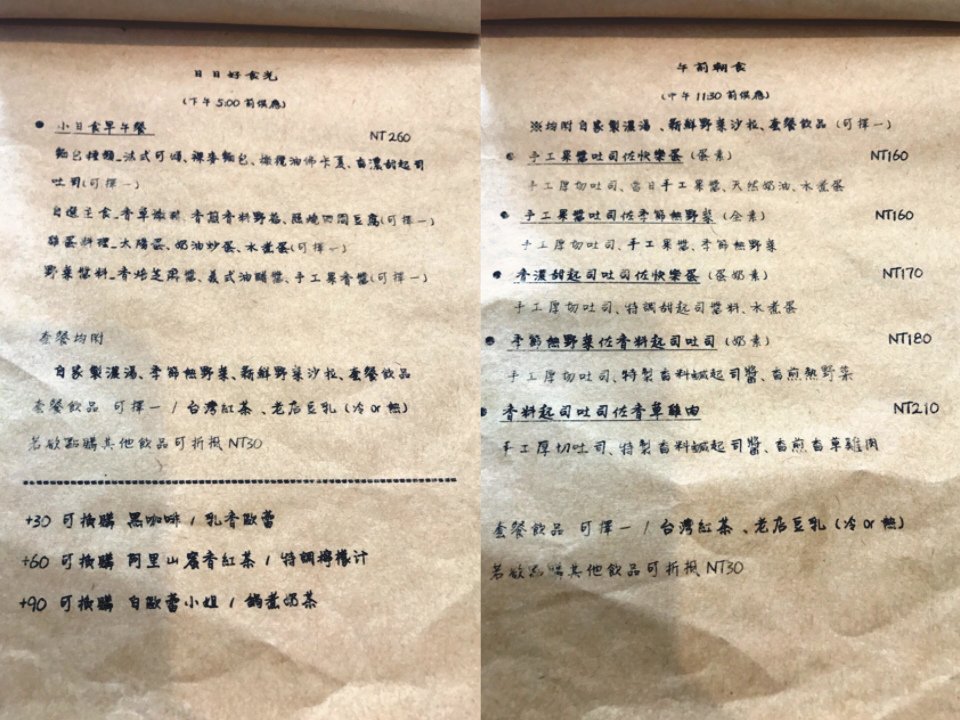 日日好食光
(下午 5:00 前供應)
• 小日食早午餐
NT 260
麵包種類_法式可頌、裸麥麵包、橄欖油佛卡夏、香濃甜起司
吐司(可擇一)
自選主食_香草嫩雞、香煎香料野菇、照燒田園豆腐(可擇一)
雞蛋料理_太陽蛋、奶油炒蛋、水煮蛋(可擇一)
野菜醬料_香焙芝麻醬、義式油醋醬、手工果香醬(可擇一)
套餐均附
自家製濃湯、季節無野菜、新鮮野菜沙拉、套餐飲品
套餐飲品 可擇一 / 台灣紅茶、老店豆乳 (冷 or 熱)
若欲點購其他飲品可折抵 NT30
+30 可換購 黑咖啡 / 乳香歐蕾
+60 可換購 阿里山蜜香紅茶 / 特調檸檬汁
+90 可換購 白歐蕾小姐 / 鍋煮奶茶
午前朝食
(中午 11:30 前供應)
※均附自家製濃湯、新鮮野菜沙拉、套餐飲品 (可擇一)
• 手工果醬吐司佐快樂蛋 (蛋素) NT160
手工厚切吐司、當日手工果醬、天然奶油、水煮蛋
• 手工果醬吐司佐季節無野菜 (全素) NT160
手工厚切吐司、手工果醬、季節無野菜
• 香濃甜起司吐司佐快樂蛋 (蛋奶素) NT170
手工厚切吐司、特調甜起司醬料、水煮蛋
• 季節無野菜佐香料起司吐司 (奶素) NT180
手工厚切吐司、特製香料鹹起司醬、香煎熱野菜
• 香料起司吐司佐香草雞肉 NT210
手工厚切吐司、特製香料鹹起司醬、香煎香草雞肉
套餐飲品 可擇一 / 台灣紅茶、老店豆乳 (冷 or 熱)
若欲點購其他飲品可折抵 NT30